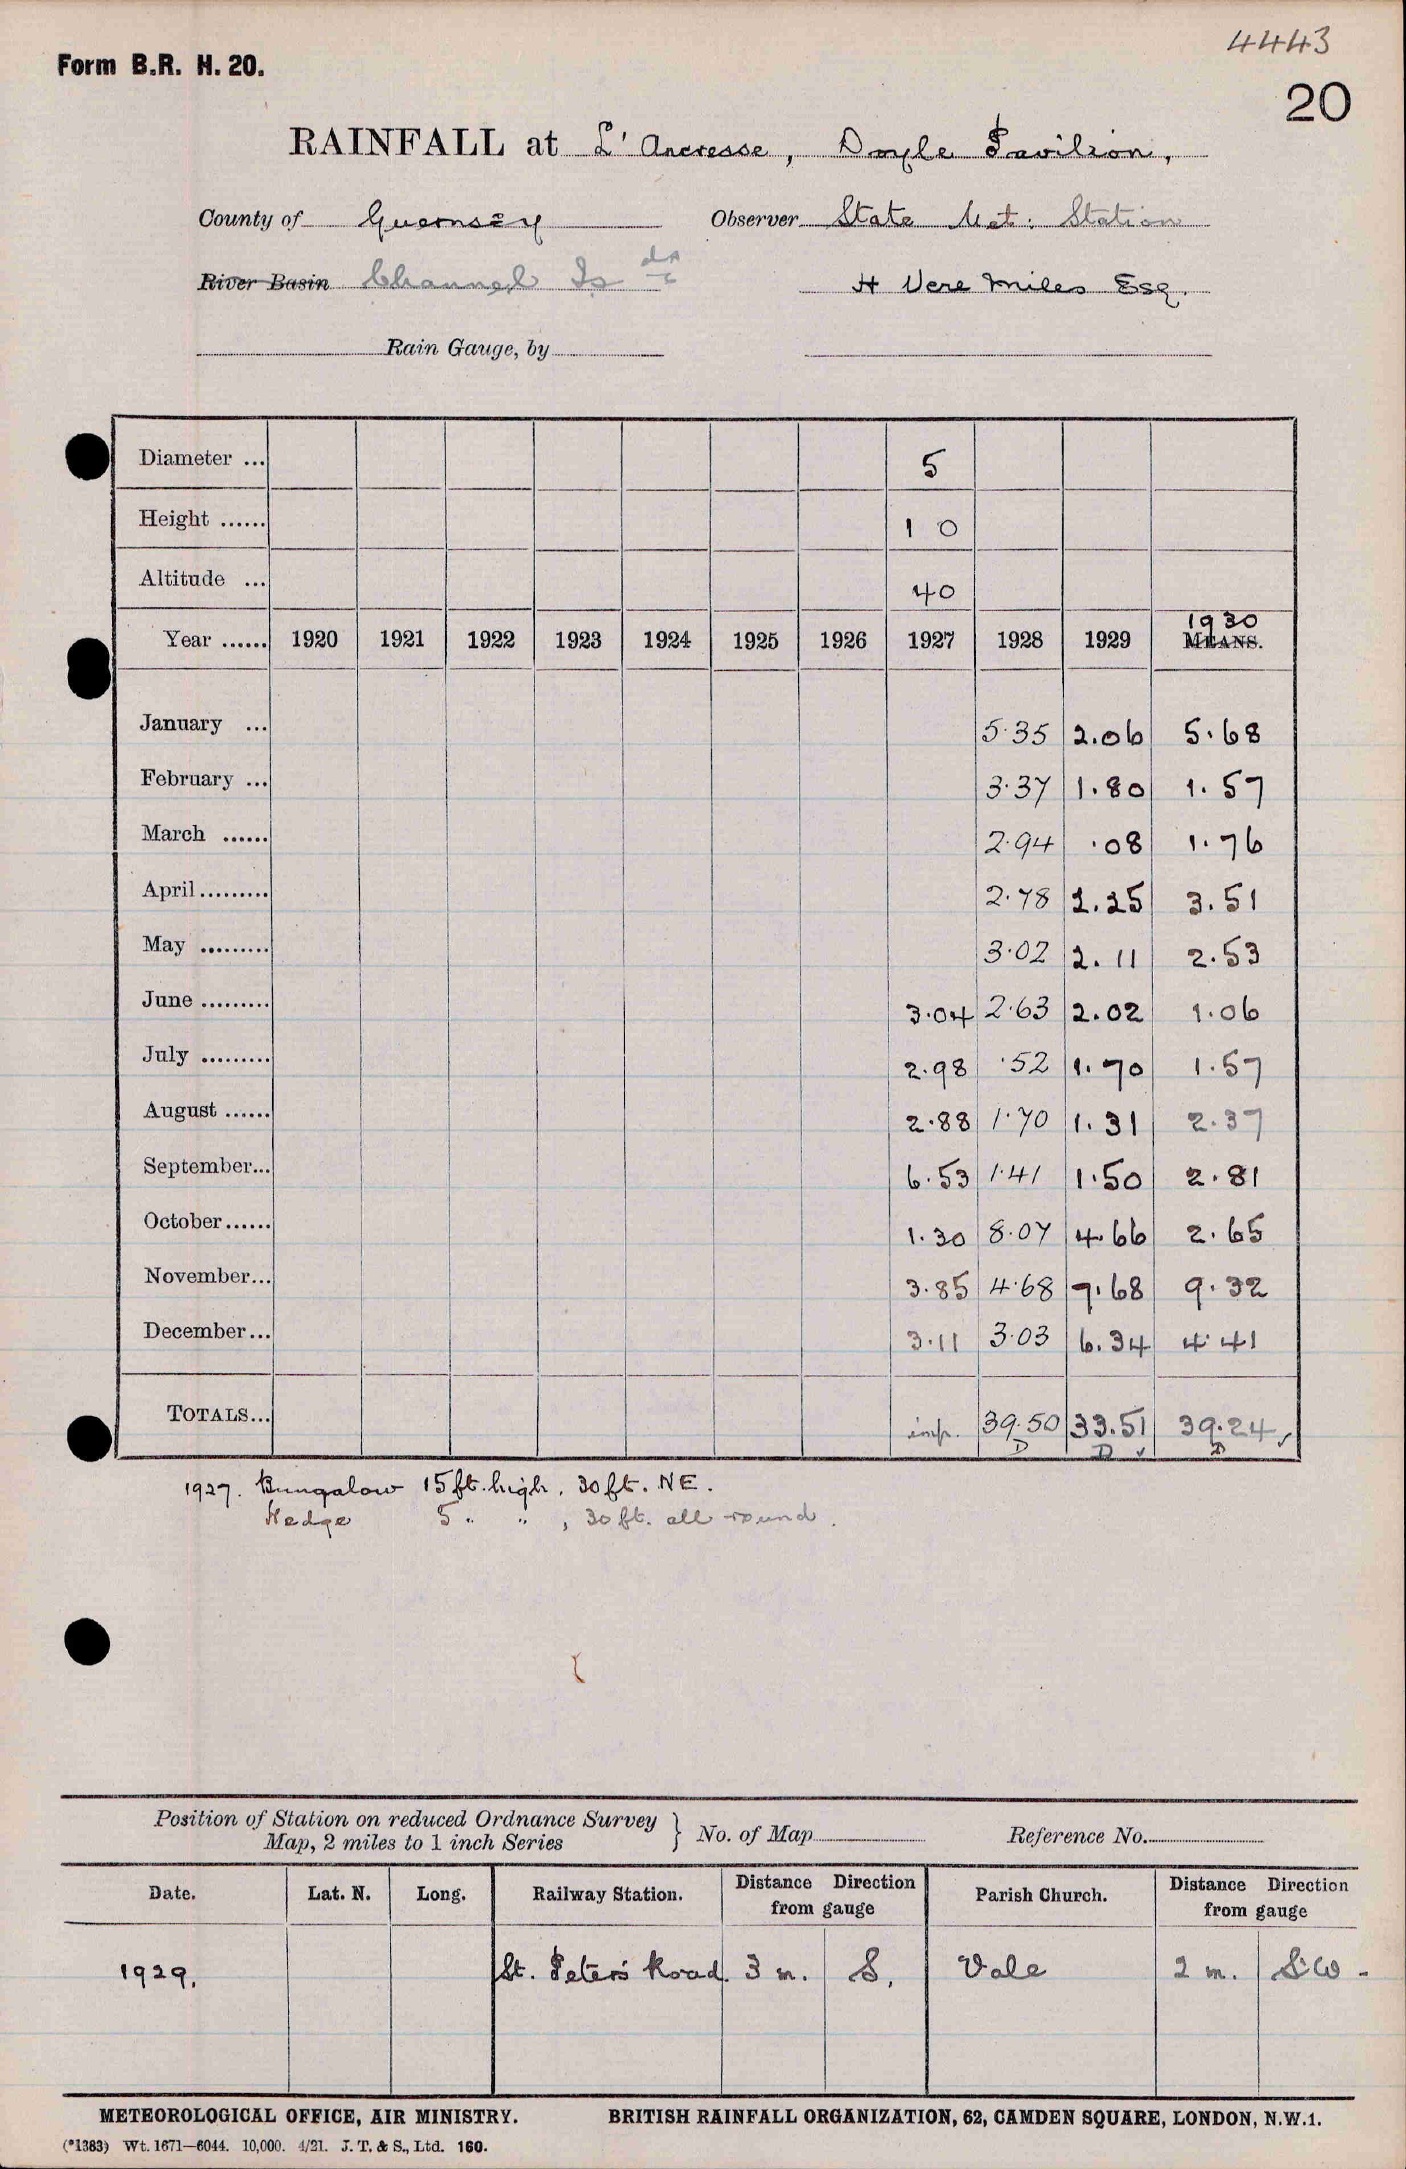 4443
Form B.R. H. 20.
20
RAINFALL at L'Ancresse, Doyle Pavilion,
County of Guernsey Observer State Met: Station
River Basin Channel Is ds H Vere Miles Esq.
Rain Gauge, by
Diameter ... 5
Height ...... 1 0
Altitude ... 40
Year ...... 1920 1921 1922 1923 1924 1925 1926 1927 1928 1929 1930 MEANS.
January ... 5.35 2.06 5.68
February ... 3.37 1.80 1.57
March ...... 2.94 .08 1.76
April ......... 2.78 2.25 3.51
May ......... 3.02 2.11 2.53
June ......... 3.04 2.63 2.02 1.06
July ......... 2.98 .52 1.70 1.57
August ...... 2.88 1.70 1.31 2.37
September... 6.53 1.41 1.50 2.81
October...... 1.30 8.07 4.66 2.65
November... 3.85 4.68 7.68 9.32
December... 3.11 3.03 6.34 4.41
TOTALS... imp. 39.50 33.51 39.24 ✓
D D ✓ D
1927. Bungalow 15ft. high, 30ft. NE.
Hedge 5 " " , 30ft. all round.
Position of Station on reduced Ordnance Survey
Map, 2 miles to 1 inch Series } No. of Map Reference No.
Date. Lat. N. Long. Railway Station. Distance Direction from gauge Parish Church. Distance Direction from gauge
1929. St. Peters Road. 3 m. S. Vale 2 m. SW -
METEOROLOGICAL OFFICE, AIR MINISTRY. BRITISH RAINFALL ORGANIZATION, 62, CAMDEN SQUARE, LONDON, N.W.1.
(*1383) Wt. 1671—6044. 10,000. 4/21. J. T. & S., Ltd. 160.